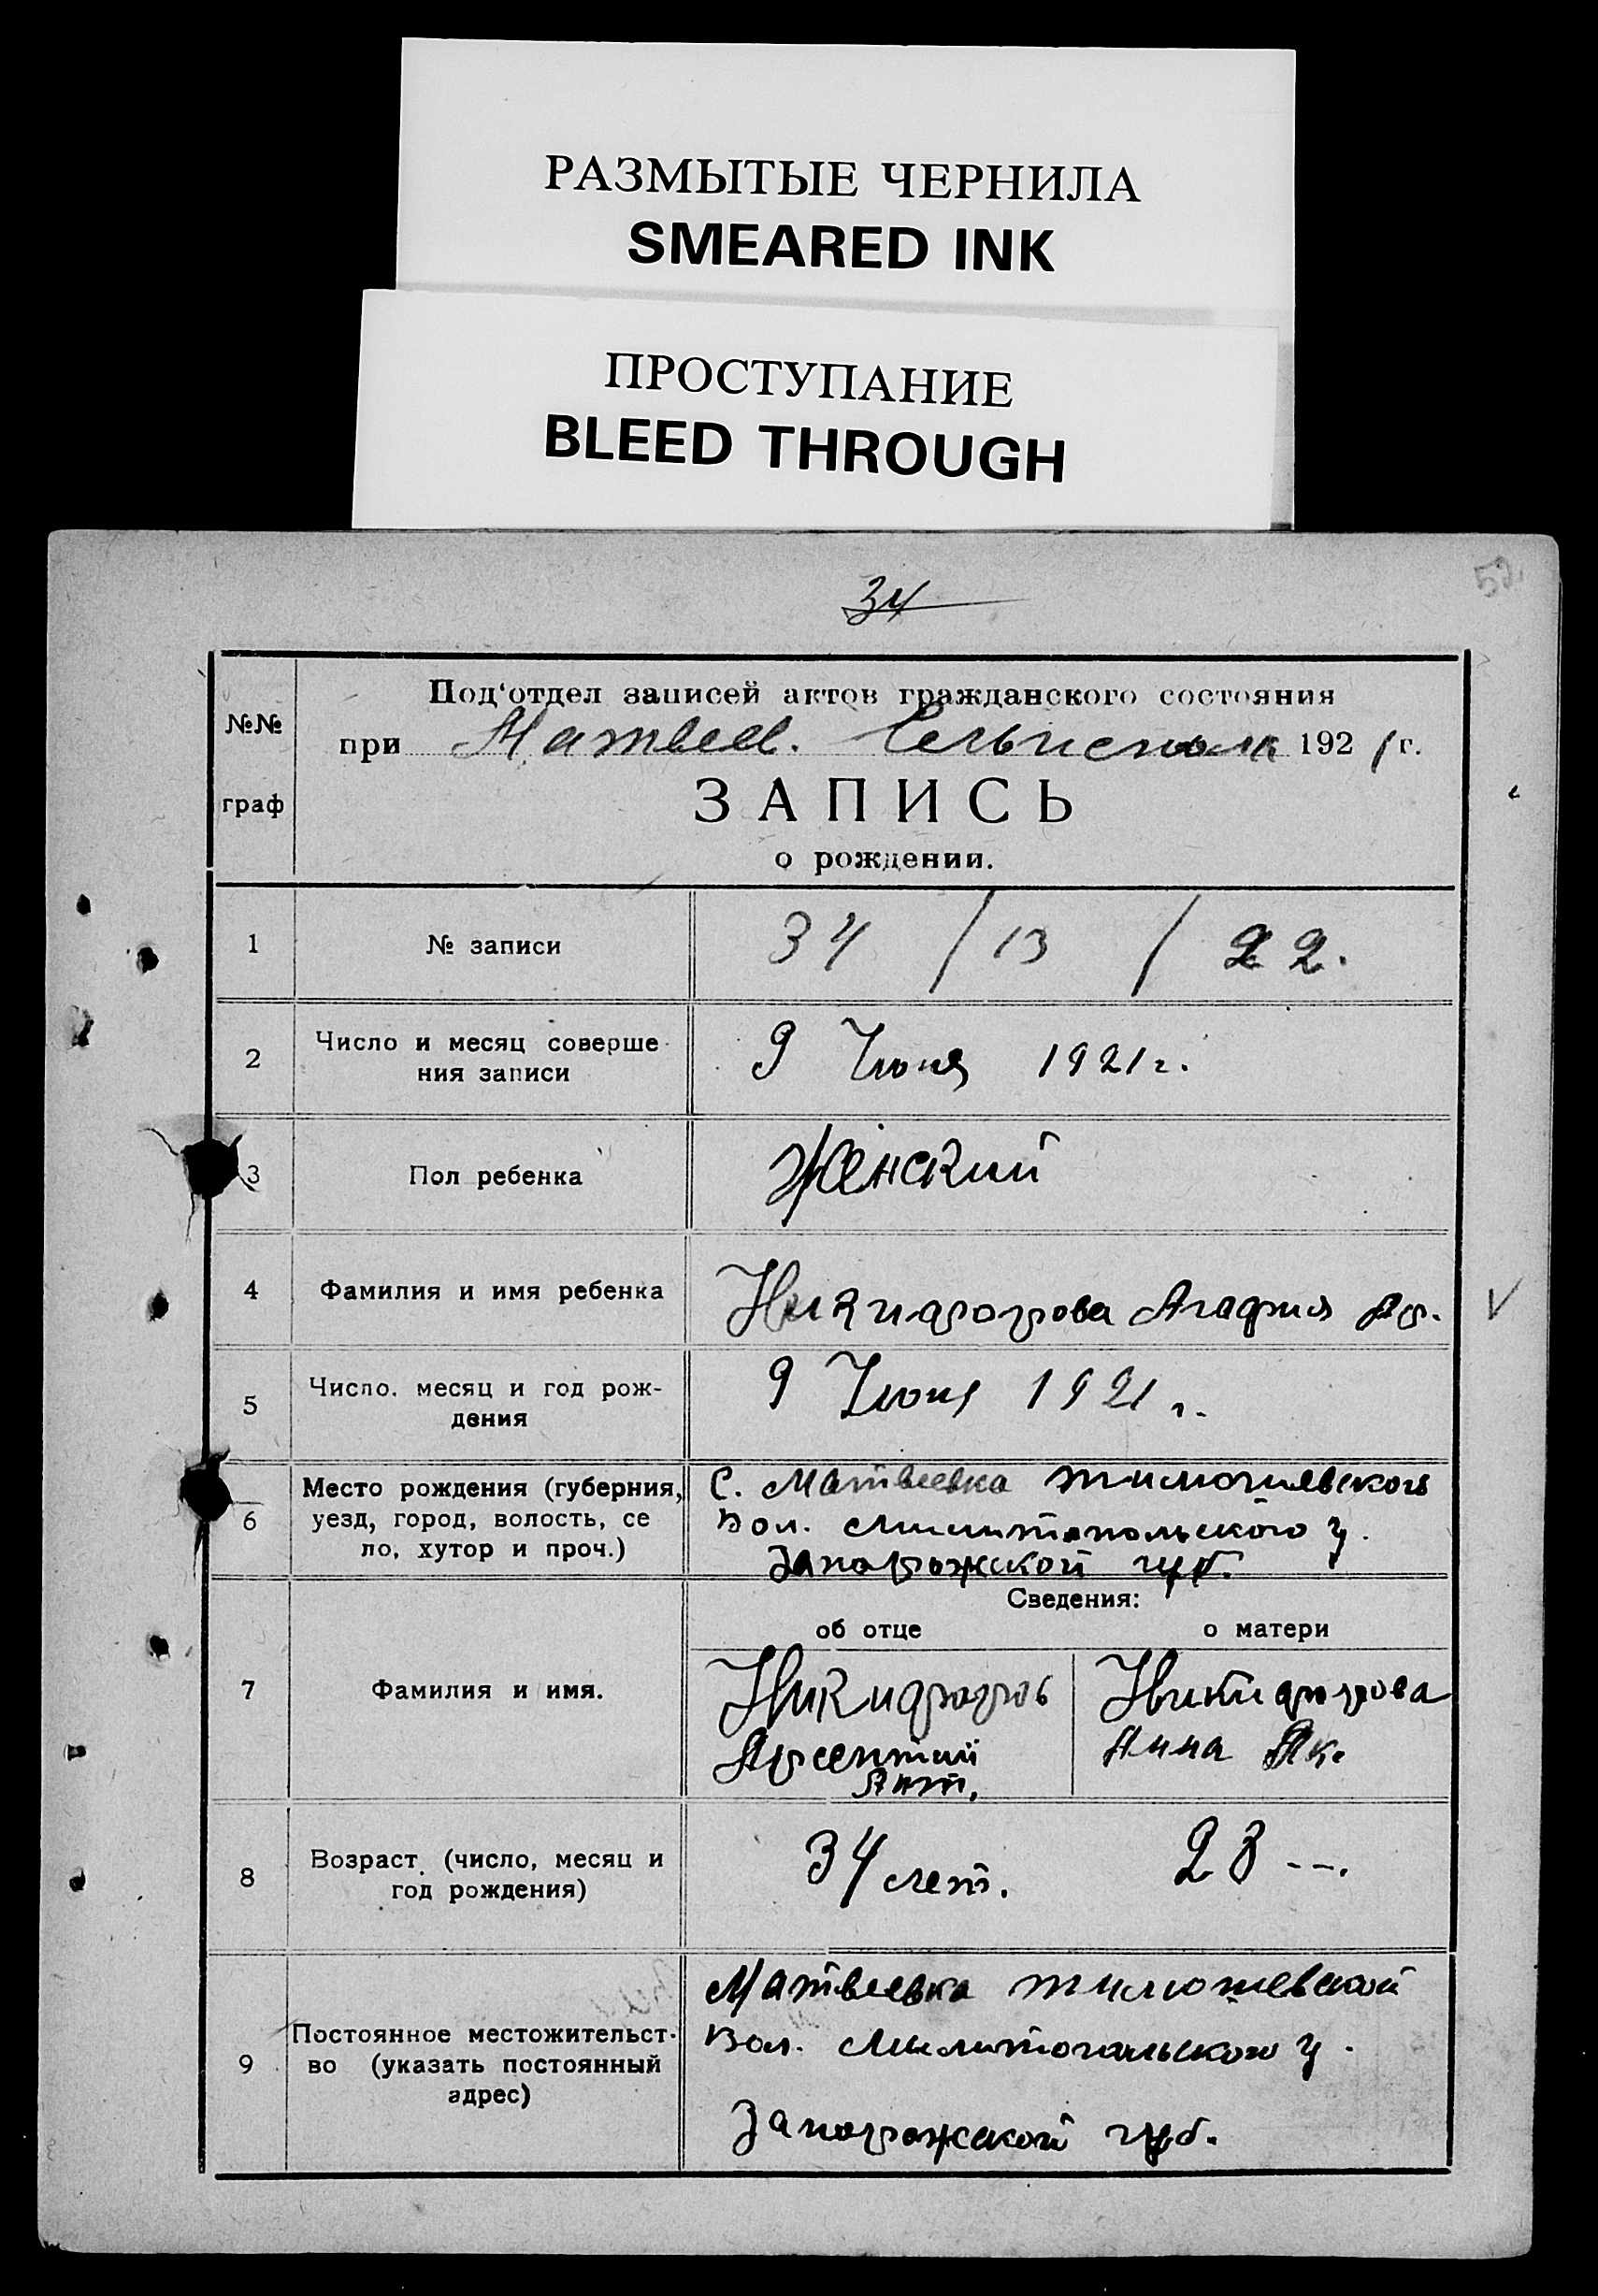 РАЗМЫТЫЕ ЧЕРНИЛА
SMEARED INK
ПРОСТУПАНИЕ
BLEED THROUGH
52
34
№№
граф
Под‘отдел записей актов гражданского состояния
при Матвеев. Сельисполк 1921 г.
ЗАПИСЬ
о рождении.
1 № записи 34 / 13 / 22.
2 Число и месяц соверше
ния записи 9 Июня 1921 г.
3 Пол ребенка Женский
4 Фамилия и имя ребенка Никифорова Агафия Ар. V
5 Число. месяц и год рож-
дения 9 Июня 1921 г.
6 Место рождения (губерния,
уезд, город, волость, се
ло, хутор и проч.)
С. Матвеевка Тимошевской
Вол. Мелитопольского у.
Запорожской губ.
Сведения:
об отце о матери
7 Фамилия и имя.
Никифоров Никифорова
Арсентий Анна Як.
Ант.
8 Возраст (число, месяц и
год рождения)
34 лет. 28 --.
9 Постоянное местожительст-
во (указать постоянный
адрес)
Матвеевка Тимошевской
Вол. Мелитопольского у.
Запорожской губ.